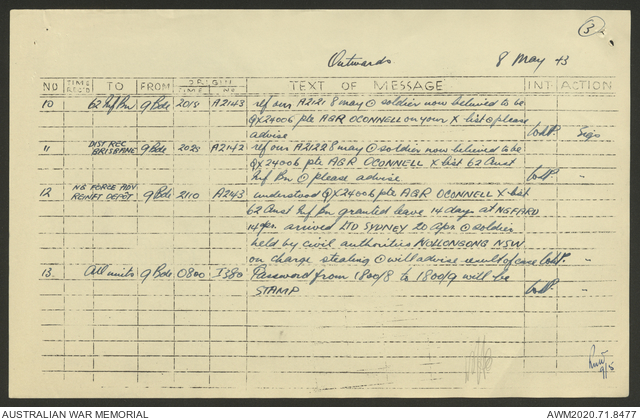 3
Outwards 8 May 43
NO TIME REC'D TO FROM ORIGIN TIME NO TEXT OF MESSAGE INT ACTION
10 62 Inf Bn 9 Bde 2018 A2143 ref our A2121 8 may @ soldier now believed to be
QX24006 pte AGR OCONNELL on your X list @ please
advise Sigs
11 DIST REC BRISBANE 9 Bde 2025 A2142 ref our A2122 8 may @ soldier now believed to be
QX24006 pte AGR OCONNELL X list 62 Aust
Inf Bn @ please advise "
12 NG FORCE ADV REINFT DEPOT 9 Bde 2110 A243 understood QX24006 pte AGR OCONNELL X list
62 Aust Inf Bn granted leave 14 days at NGFARD
14 apr. arrived LTD SYDNEY 20 apr @ soldier
held by civil authorities WOLLONGONG NSW
on charge stealing @ will advise result of case "
13. All units 9 Bde 0800 I380 Password from 1800/8 to 1800/9 will be
STAMP "
9/5
AUSTRALIAN WAR MEMORIAL AWM2020.71.8477